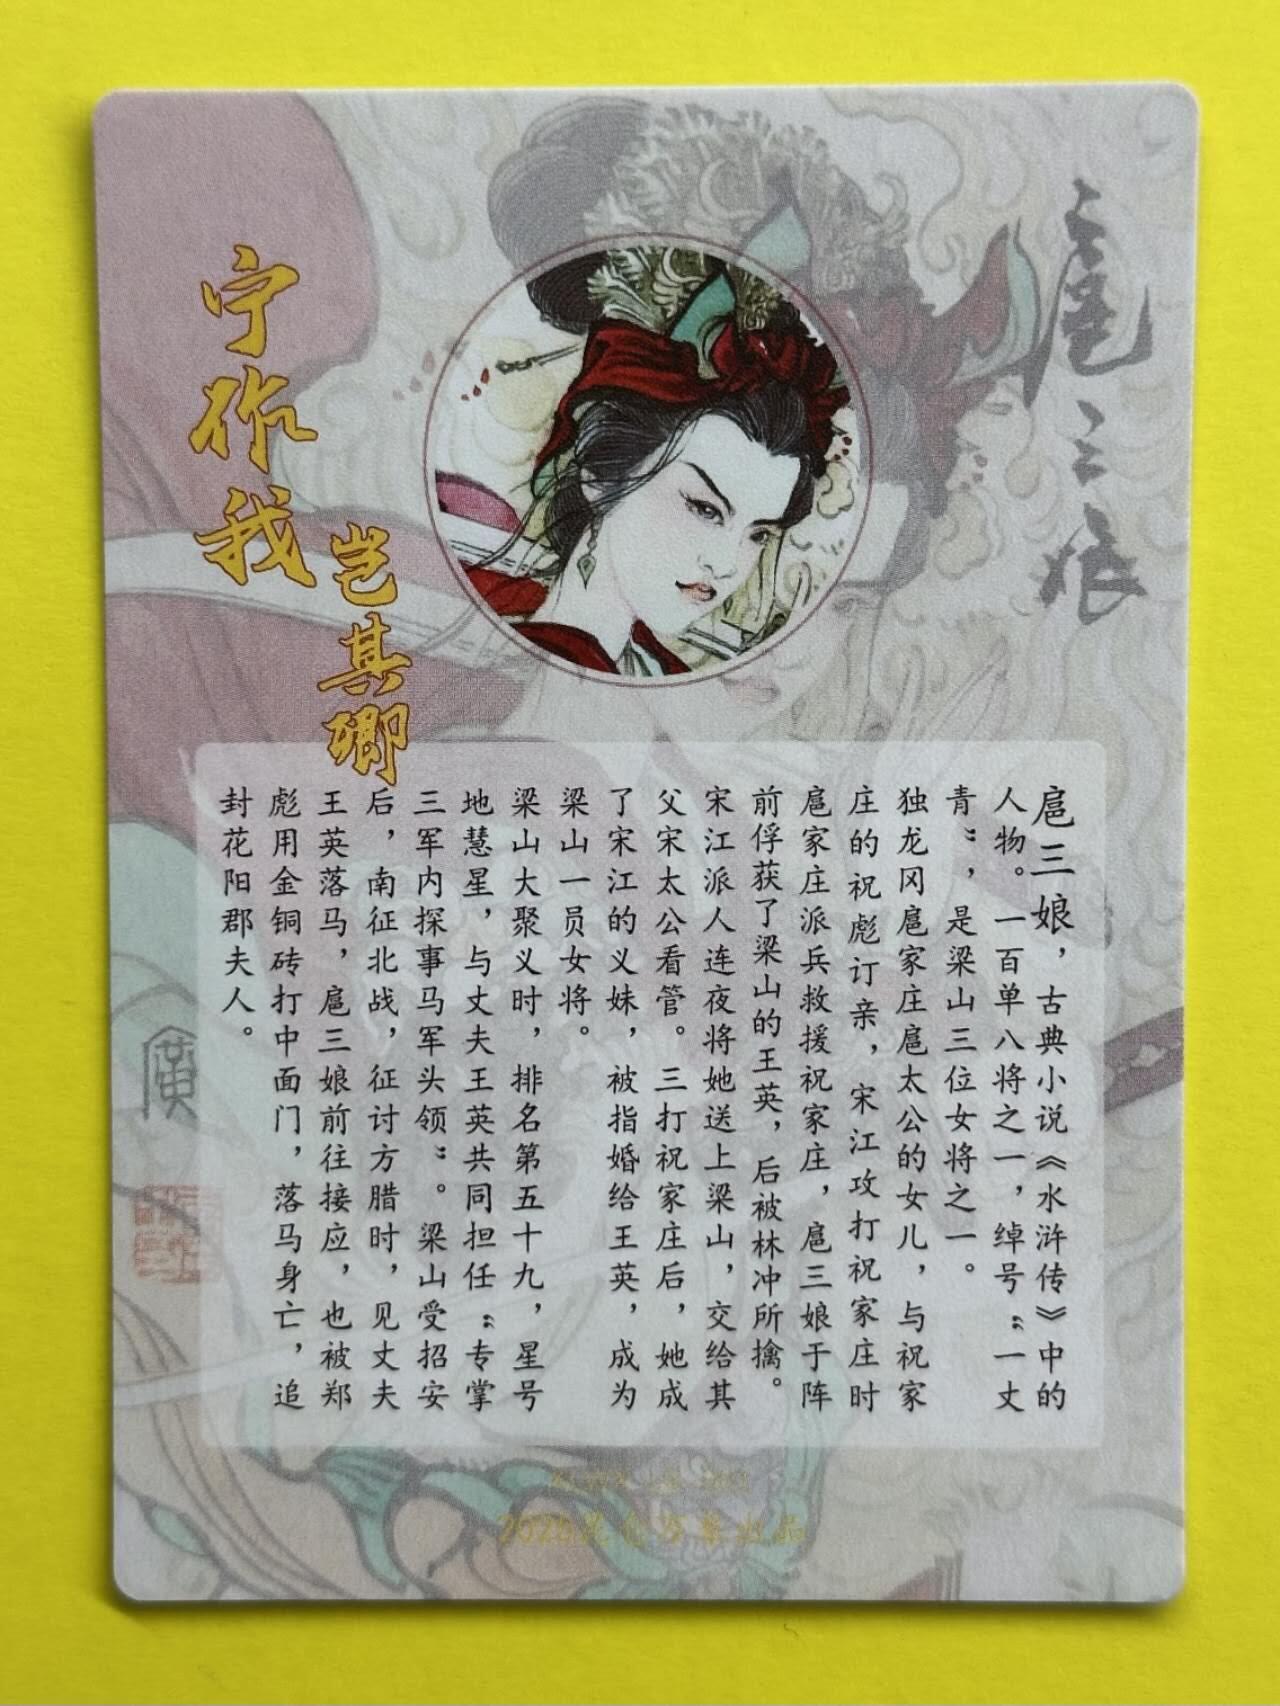 扈三娘
宁作我
岂其卿
扈三娘，古典小说《水浒传》中的
人物。一百单八将之一，绰号“一丈
青”，是梁山三位女将之一。
独龙冈扈家庄扈太公的女儿，与祝家
庄的祝彪订亲，宋江攻打祝家庄时
扈家庄派兵救援祝家庄，扈三娘于阵
前俘获了梁山的王英，后被林冲所擒。
宋江派人连夜将她送上梁山，交给其
父宋太公看管。三打祝家庄后，她成
了宋江的义妹，被指婚给王英，成为
梁山一员女将。
梁山大聚义时，排名第五十九，星号
地慧星，与丈夫王英共同担任“专掌
三军内探事马军头领”。梁山受招安
后，南征北战，征讨方腊时，见丈夫
王英落马，扈三娘前往接应，也被郑
彪用金铜砖打中面门，落马身亡，追
封花阳郡夫人。
廣